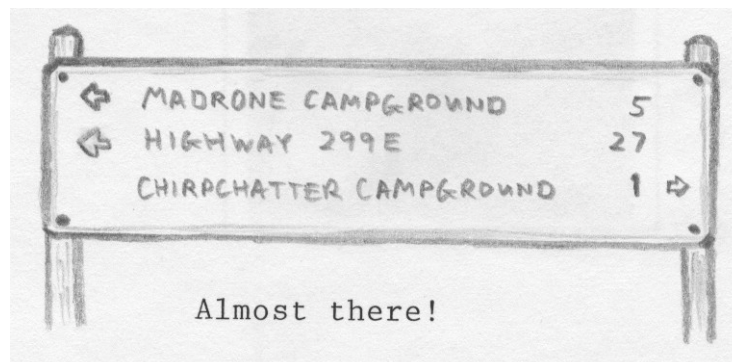 MADRONE CAMPGROUND 5
HIGHWAY 299E 27
CHIRPCHATTER CAMPGROUND 1
Almost there!